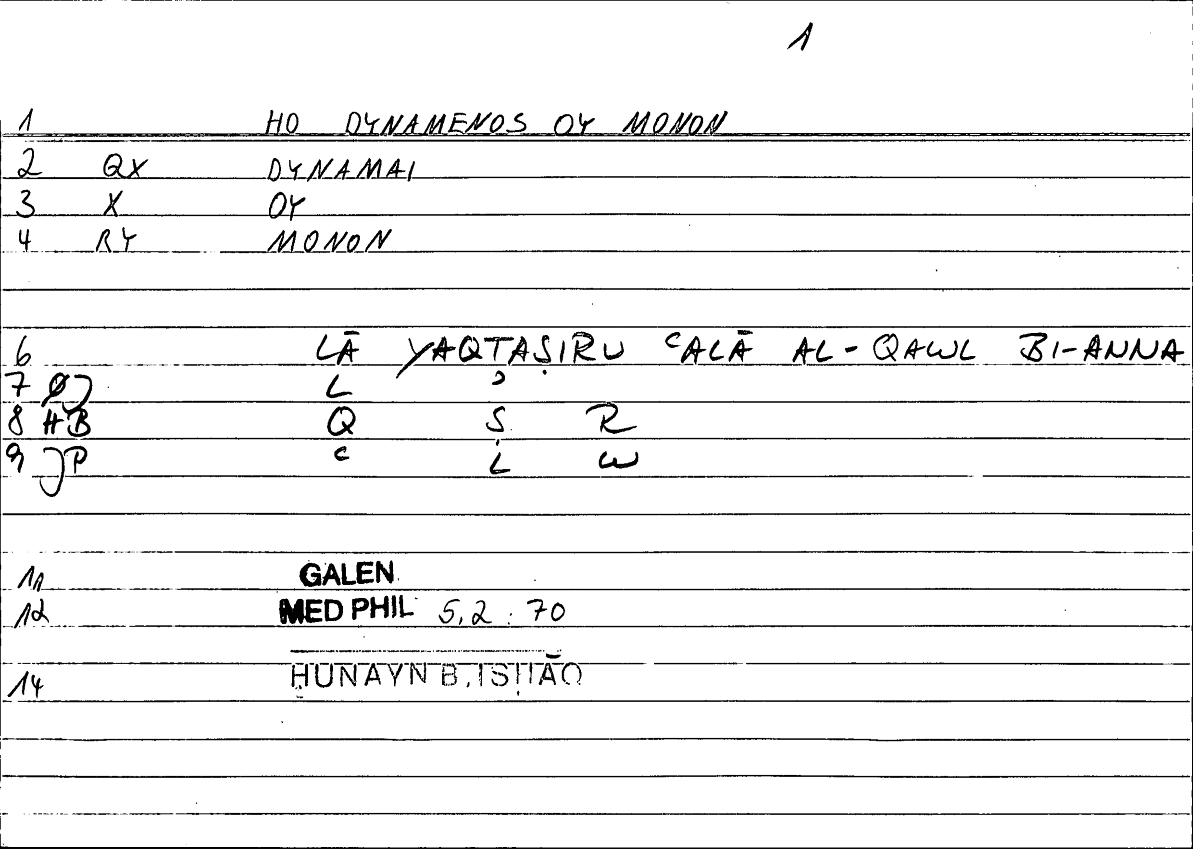 1
1 HO DYNAMENOS OY MONON
2 QX DYNAMAI
3 X OY
4 RY MONON
6 LĀ YAQTAṢIRU ʿALĀ AL-QAWL BI-ANNA
7 ØJ L ʾ
8 HB Q Ṣ R
9 JP ʿ L W
11 GALEN
12 MED PHIL 5,2 : 70
14 ḤUNAYN B. ISḤĀQ